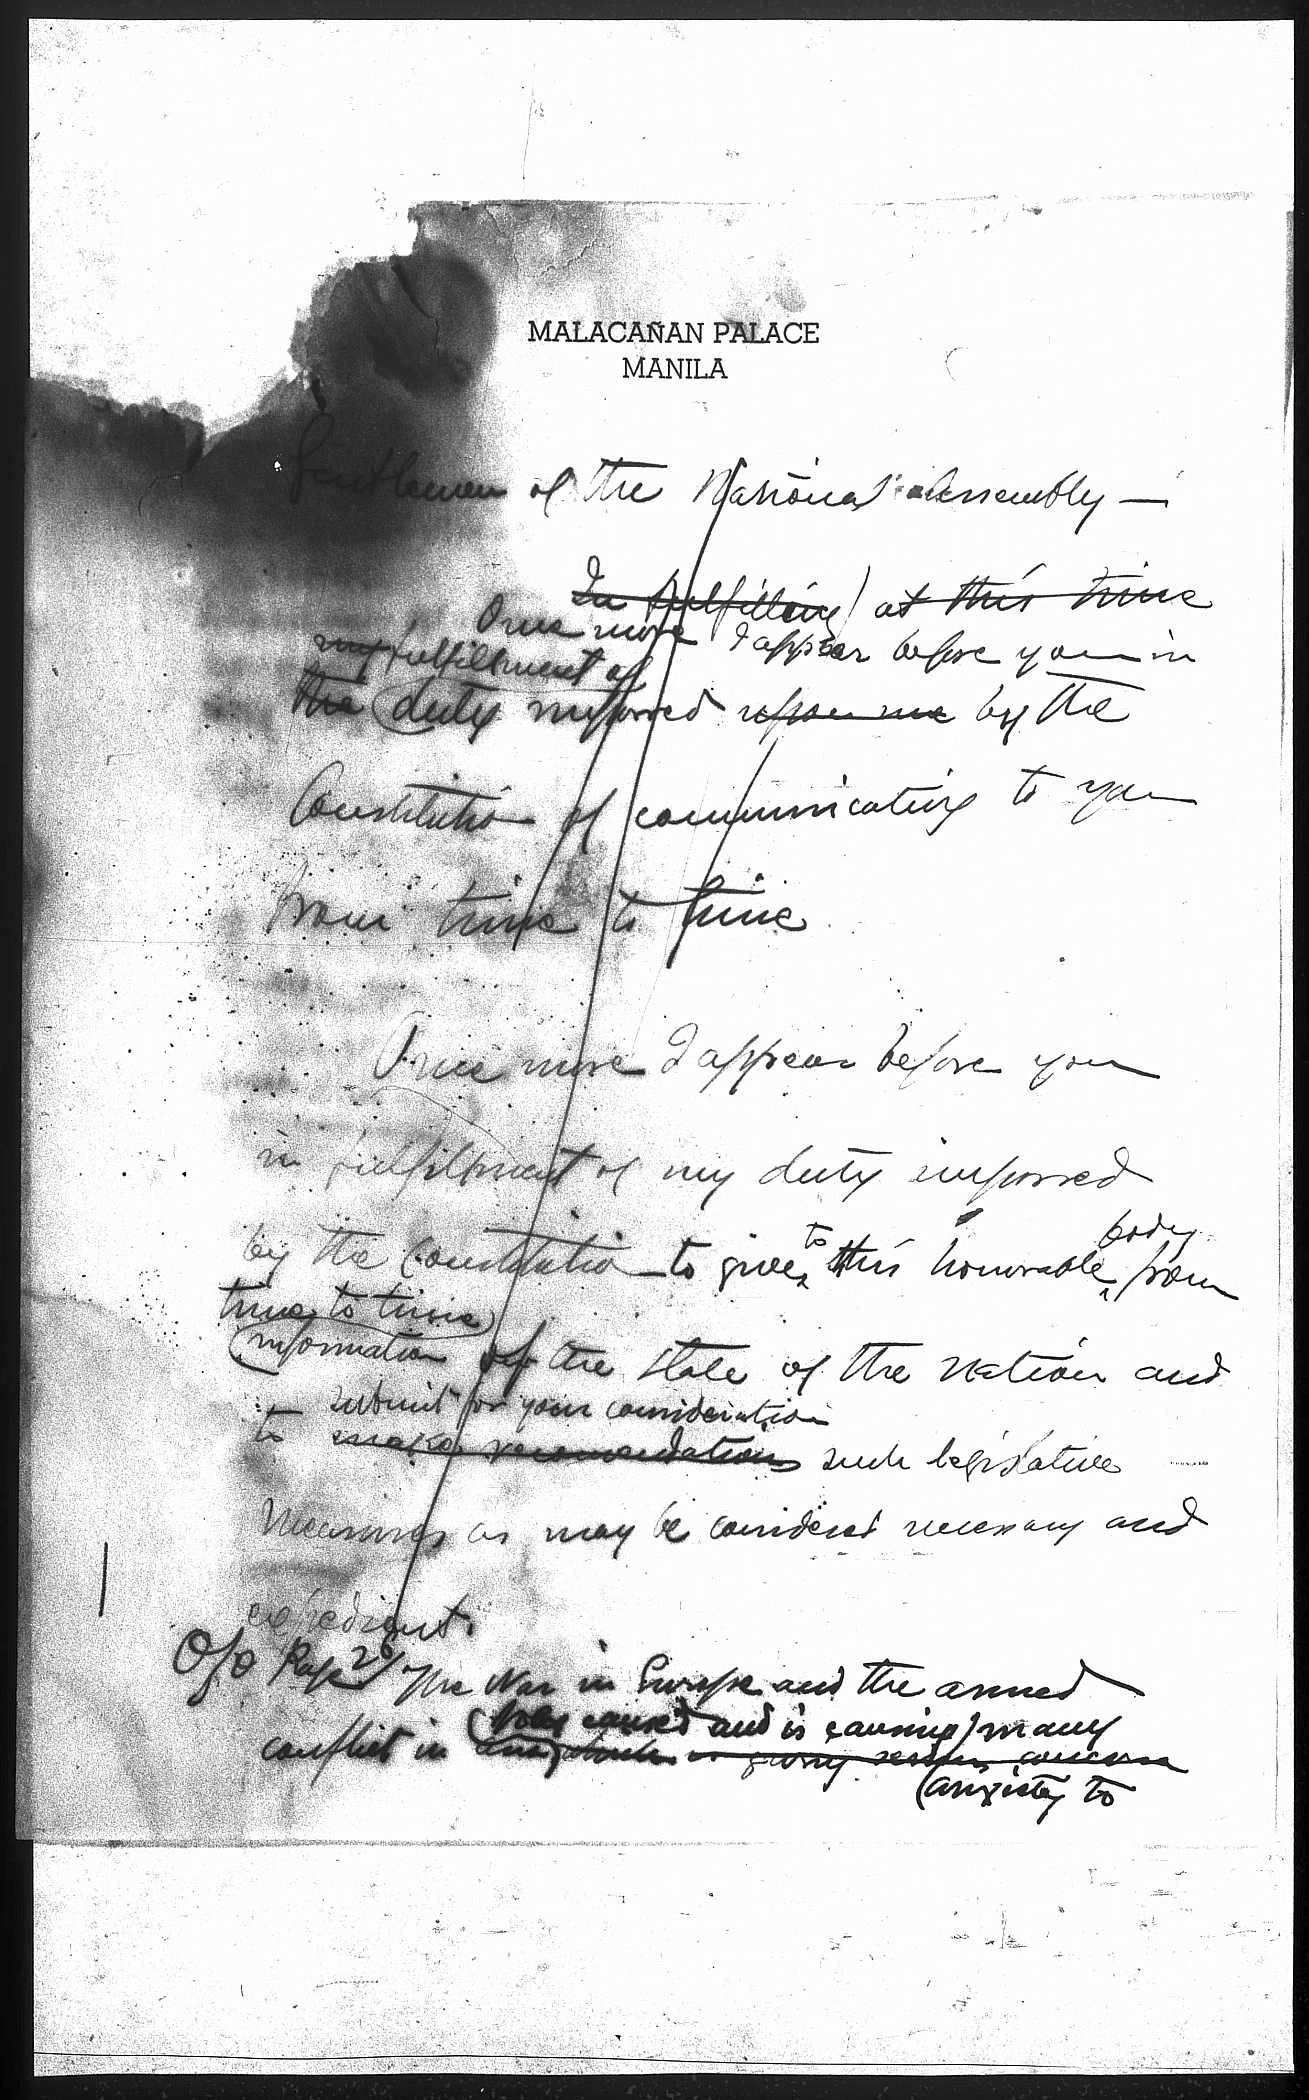 MALACAÑAN PALACE
MANILA
Gentlemen of the National Assembly —
In fulfilling at this time
Once more I appear before you in
my fulfillment of
the duty imposed upon me by the
Constitution of communicating to you
from time to time
Once more I appear before you
in fulfillment of my duty imposed
by the Constitution to give to this honorable body from
time to time
information of the state of the nation and
submit for your consideration
to make recomendations such legislative
measures as may be considered necessary and
expedient.
Page 2 The War in Europe and the armed
has caused and is causing many
conflict in giving concern
anxiety to